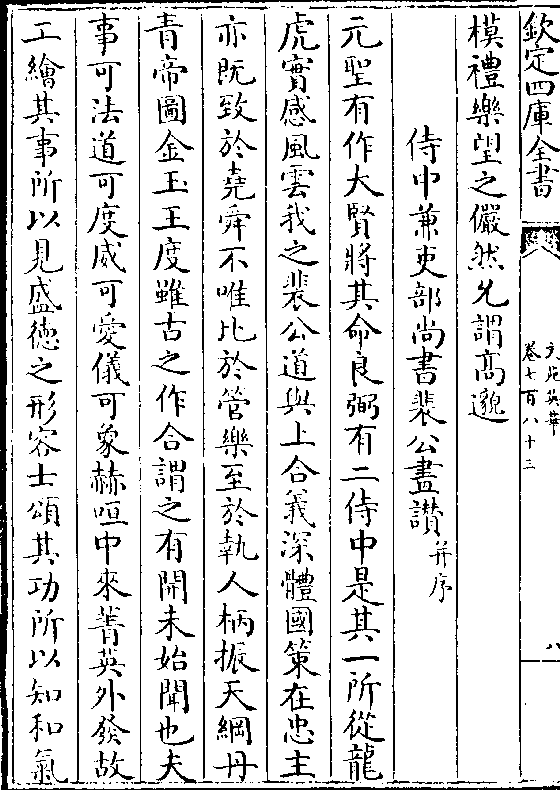 欽定四庫全書
文苑英華
卷七百八十三
八
模禮樂望之儼然允謂高邈
侍中兼吏部尚書裴公畫讃并序
元聖有作大賢將其命良弼有二侍中是其一所從龍
虎實感風雲我之裴公道與上合義深體國策在忠主
亦既致於堯舜不唯比於管樂至於執人柄振天綱丹
青帝圖金玉王度雖古之作合謂之有開未始聞也夫
事可法道可度威可愛儀可象赫咺中來菁英外發故
工繪其事所以見盛徳之形容士頌其功所以知和氣